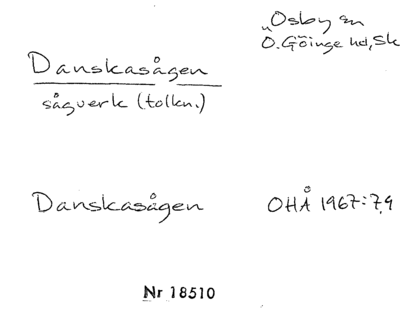 „Osby sn
Ö. Göinge hd, Sk
Danskasågen
sågverk (tolkn.)
Danskasågen OHÅ 1967:7,9
Nr 18510